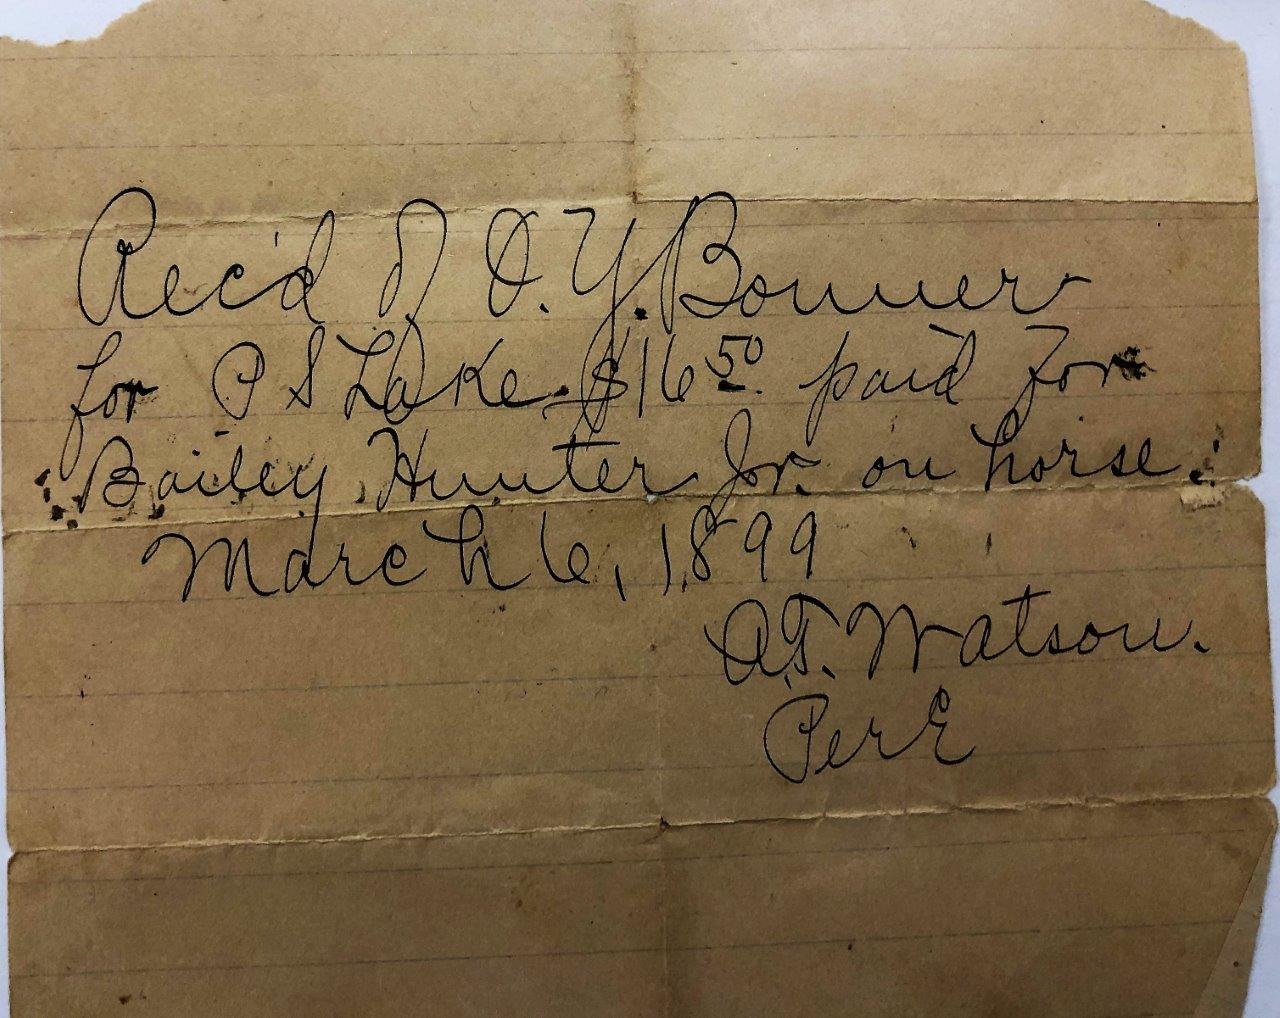 Rec'd of O. Y. Bonner
for P S Lake $16 50 paid for
Bailey Hunter Jr. on horse.
March 6, 1899
A.T. Watson.
Per E